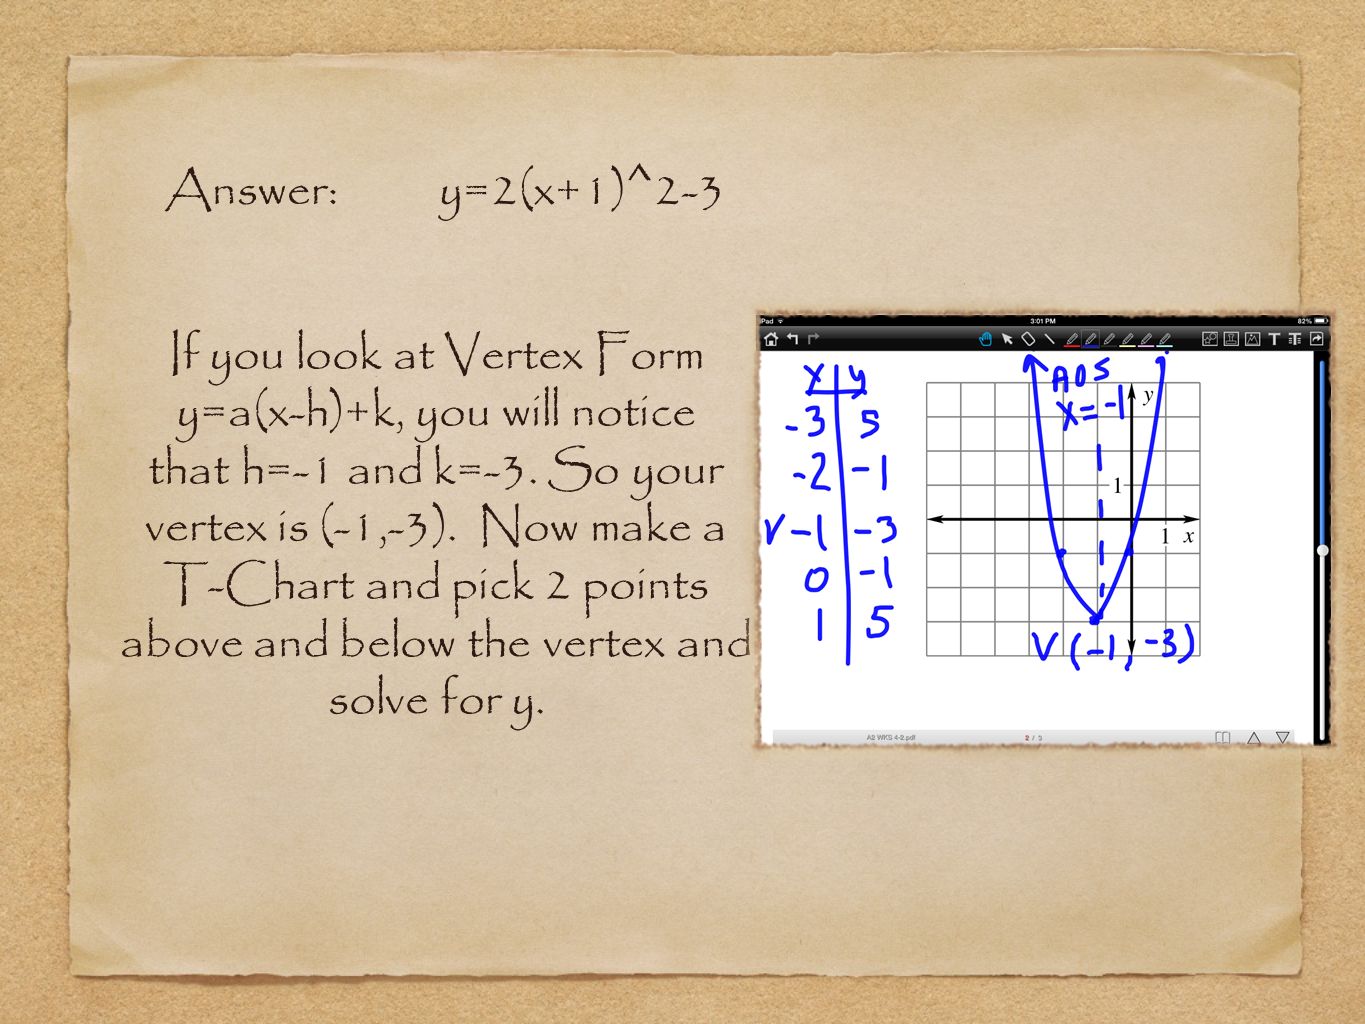 Answer: y=2(x+1)^2-3
If you look at Vertex Form
y=a(x-h)+k, you will notice
that h=-1 and k=-3. So your
vertex is (-1,-3). Now make a
T-Chart and pick 2 points
above and below the vertex and
solve for y.
iPad 3:01 PM 82%
x y
-3 5
-2 -1
V -1 -3
0 -1
1 5
AOS
x=-1
y
1
1 x
V(-1,-3)
A2 WKS 4-2.pdf 2 / 3